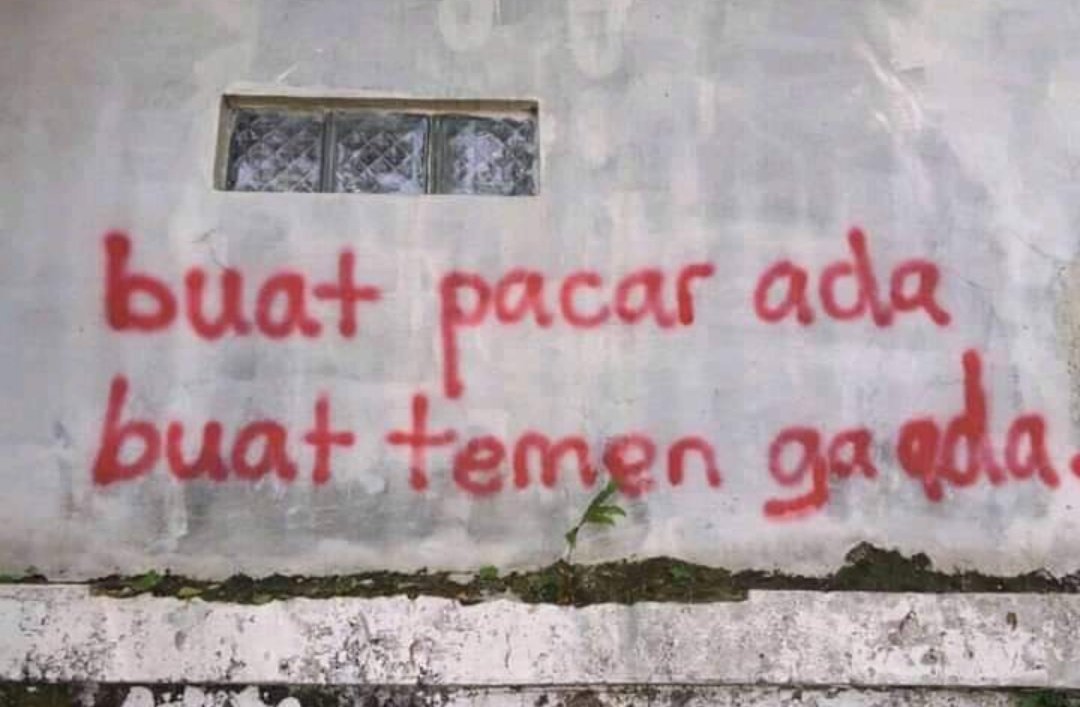 buat pacar ada
buat temen ga ada.